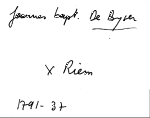 Joannes bapt. De Buyser
X Riem
1791-37